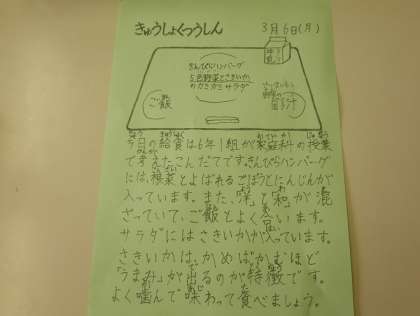 きゅうしょくつうしん
3月6日(月)
牛乳
きんぴらハンバーグ
5色野菜ときさいか
カミカミサラダ
ご飯
野菜の
汁
今日の給食は6年1組が家庭科の授業
で考えたこんだてです。きんぴらハンバーグ
には、根菜とよばれるごぼうとにんじんが
入っています。また、"洋"と"和"が混
ざっていて、ご飯とよく合います。
サラダにはさきいかが入っています。
さきいかは、かめばかむほど
「うまみ」が出るのが特徴です。
よく噛んで味わって食べましょう。